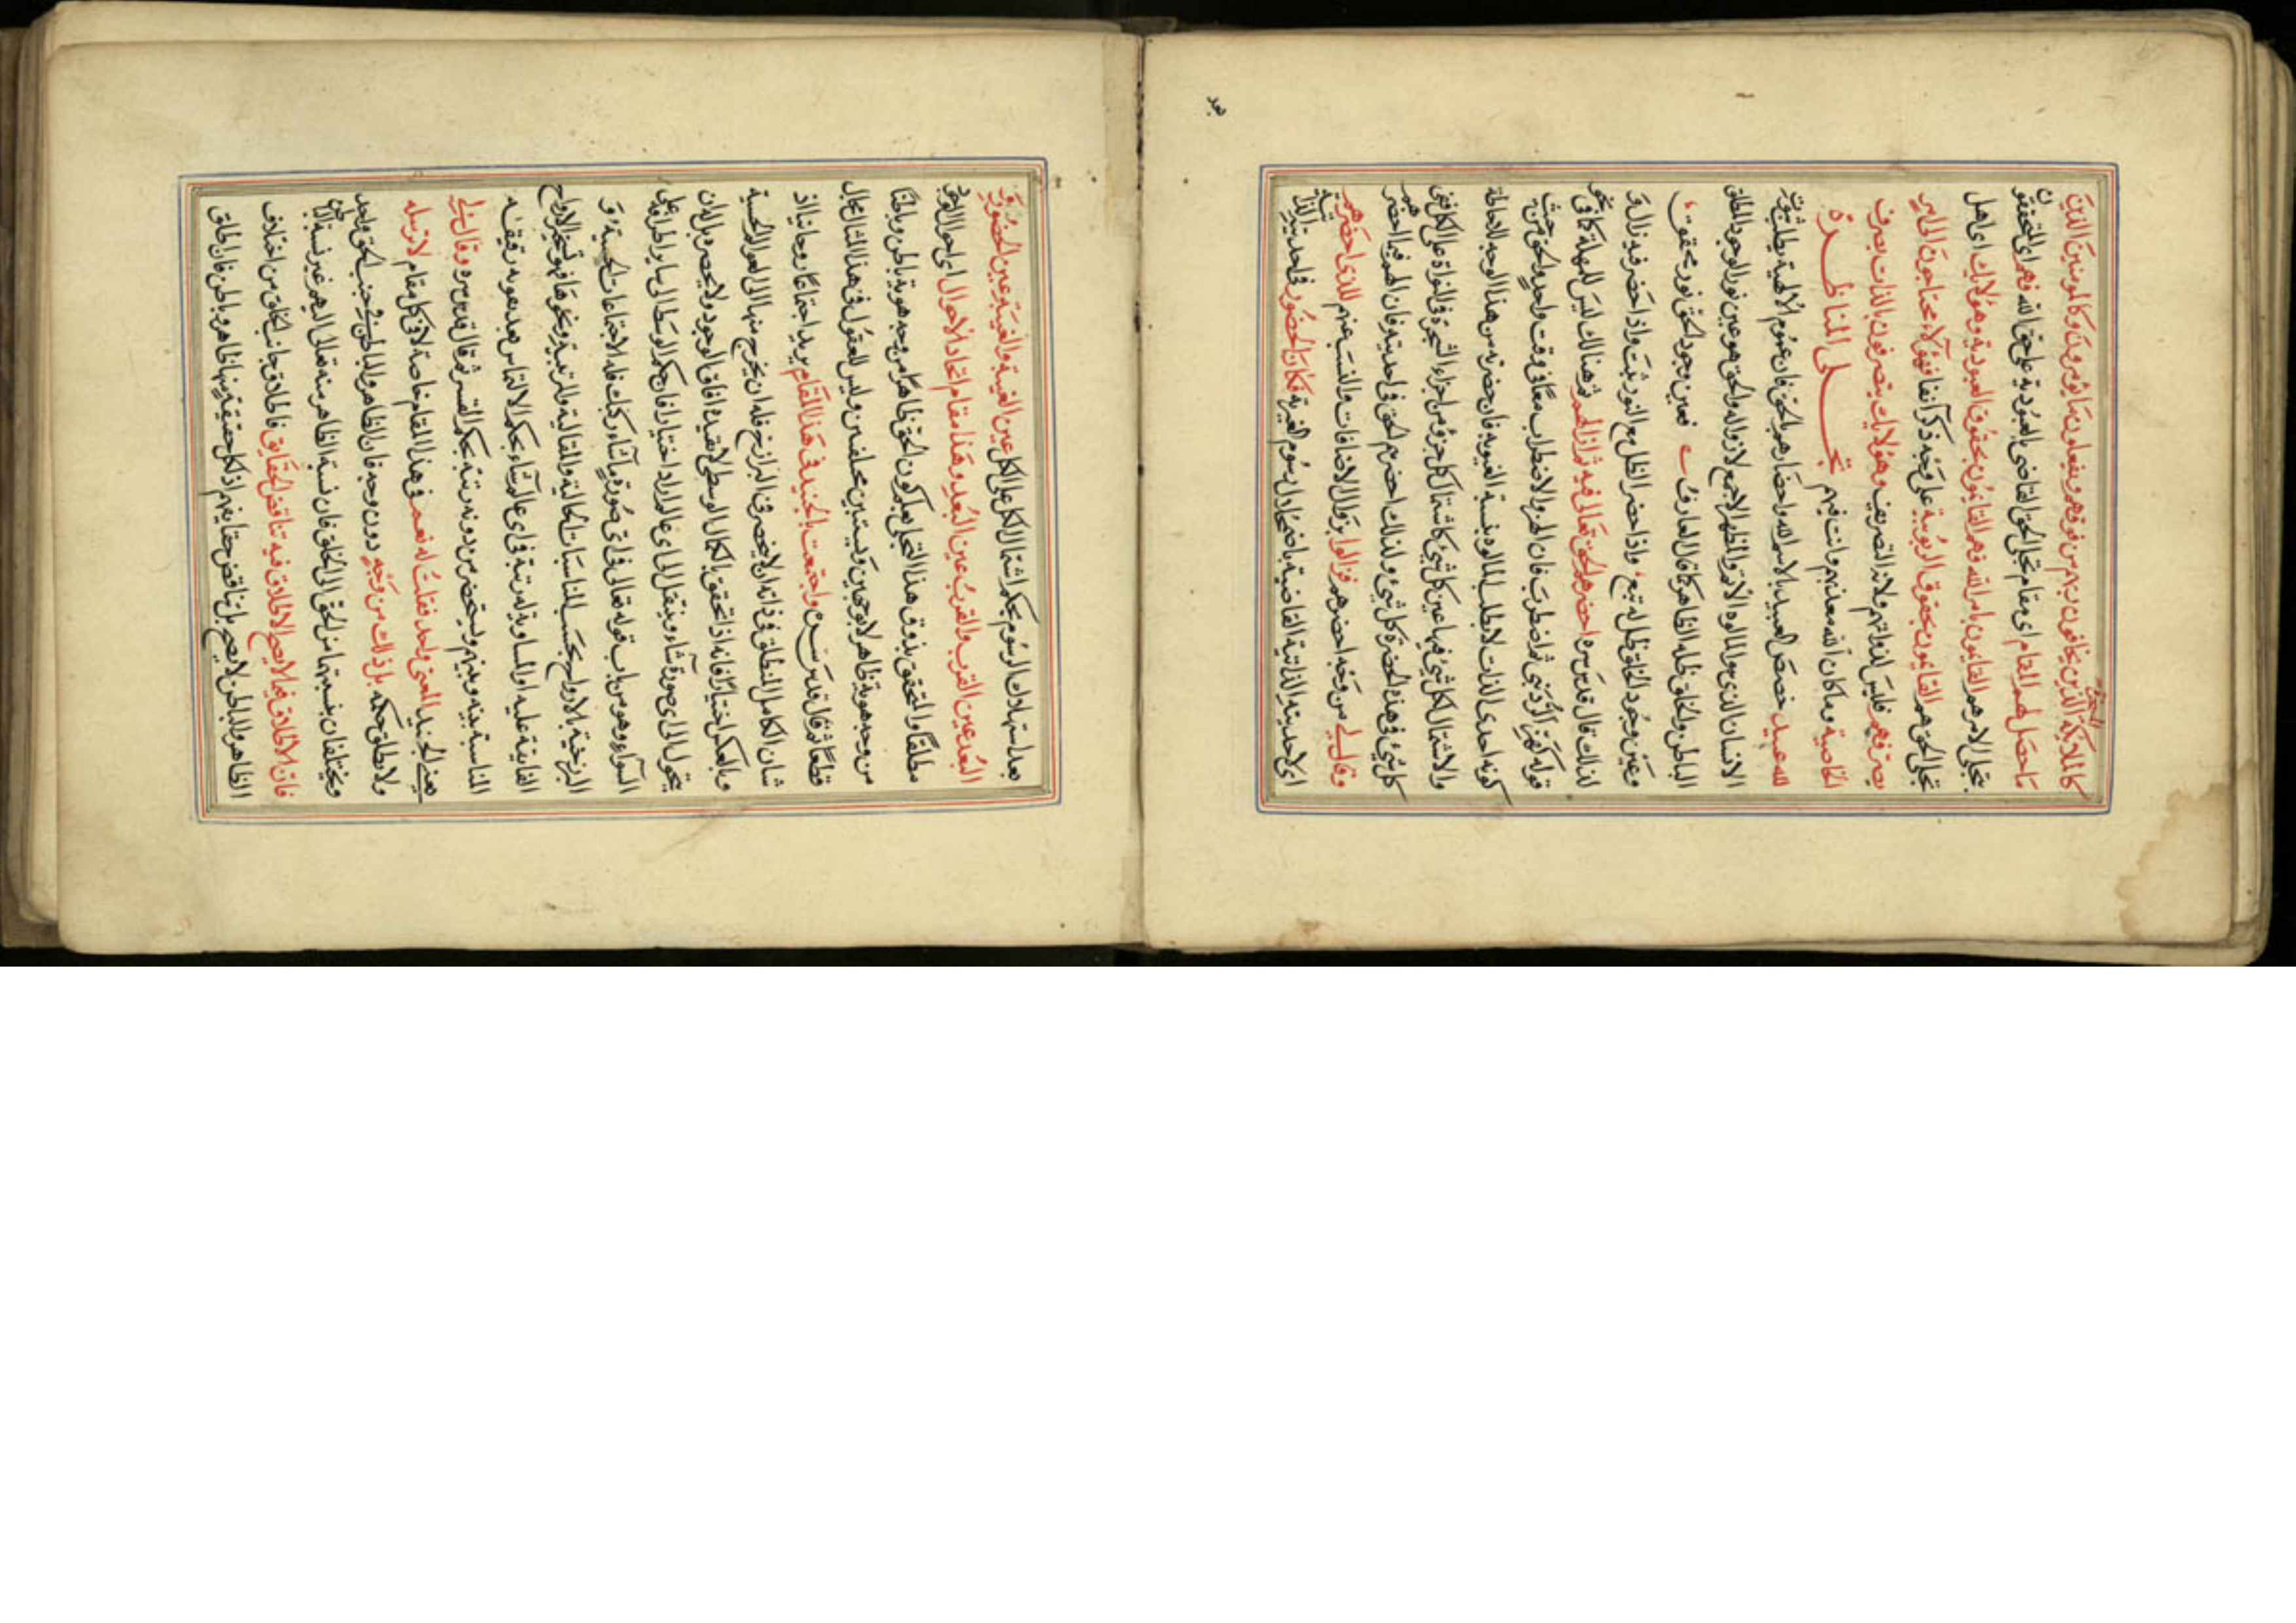 كالملائكة الذين يخافون ربهم من فوقهم ويفعلون ما يؤمرون وكالمؤمنين الذين
ما حصل لهم المقام اى مقام تجلى الحق القاضى بالعبودية على حق الله فهم اى المتحققون
بتجلى الامر هم القائمون بامر الله فهم القائمون بحقوق العبودية وهؤلائك اى اهل
تجلى الحق هم القائمون بحقوق الربوبية على وجه ذكر آنفا فهؤلاء محتاجون الى امر
يصرفهم فليس لذواتهم ولانه التصريف وهؤلائك يتصرفون بالذات تصرف
الخاصية وما كان الله معذبهم وانت فيهم تجلى المناظرة
لله عبيد خصص العبيد بالاسم الله واحضارهم بالحق فان عموم الالهية يطلب ثبوت
الانسان الذى هو المالوه الاتم والمظهر الاجمع لا زواله والحق هو عين نور الوجود المطلق
الباطن والخلق ظله الظاهر كما قال العارف فعين وجود الحق نور محقق
وعين وجود الخلق ظل له تبع واذا حضر الظل مع النور ثبت واذا حضر فيه زال و
لذلك قال قدس سره احضرهم الحق تعالى فيه ثم ازالهم ثم هنالك ليس للمهلة كما فى نحو
قوله كهز الردينى ثم اضطرب فان الهز والاضطراب معا فى وقت واحد والحق من حيث
كونه احدى الذات لا يطلب المالوه بنسبة الغيرية فان حضرته من هذا الوجه للاحاطة
والاشتمال الكل شئ فيها عين كل شئ كاشتمال كل جزء من اجزاء الشجرة فى النواة على الكل فهى
كل شئ وهذه الحضرة كل شئ ولذلك احضرهم الحق فى احديته فان الهم فيما احضرهم
وقال لى من وجه احضرهم فزالوا بزوال الاضافات والنسب عنهم للذى احضرهم
اى لاحديته الذاتية القاضية باضمحلال رسوم الغيرية فكان الحضور فى احديته الذاتية
بعد
بعد استهلاك الرسوم بحكم اشتمال الكل على الكل عين الغيبة والغيبة عين الحضور و
البعد عين القرب والقرب عين البعد وهذا مقام اتحاد الاحوال اى احوال الوجود
مطلقا والتحقق بذوق هذا التجلى يعلم كون الحق ظاهرا من وجه هو به باطن وباطنا
من وجه هو به ظاهر لا بوجهين ونسبتين مختلفتين وليس للعقول فى هذا المنال مجال
قطعا ثم قال قدس سره واجتمعت بالجنيد فى هذا المقام يريد اجتماعا روحانيا اذ
شان الكامل المنطلق فى ذاته ان لا ينحصر فى البرازخ فله ان يخرج منها الى العوالم الحسية
وبالعكس اختيارا فانه اذ تحقق بالكمال الوسطى لا تقيده آفاق الوجود ولا يحصره بل له ان
يتحول الى اى صورة شاء وينتقل الى اى عالم اراد اختيارا فان حكم الوسط الى سائر اطرافه على
السواء وهو من باب قوله تعالى فى اى صورة ما شاء ركبك فله الاجتماعات الحسية و
البرزخية بالارواح بحسب المناسبات الحالية والمقالية والمرتبية ونحوها فهو تسخير الارواح
الفايقة عليه او المساوية له رتبة فى اى عالم شاء بحكم الالتماس بعد عوده رقيقة
المناسبة بينه وبينهم ويستحضر من دونه رتبة بحكم القسر ثم قال قدس سره وقال لى
يعنى الجنيد المعنى واحد فقلت له نعم فى هذا المقام خاصة لا فى كل مقام لا ترسله
ولا تطلق حكمه بل ذلك من وجه دون وجه فان الظاهر والباطن فى جنب الحق واحد
ويختلفان بنسبتهما من الحق الى الخلق فان نسبة الظاهر منه تعالى اليهم غير نسبة الباطن
فان الاطلاق فيما لا يصح الاطلاق فيه تناقض الحقايق فاطلاق جانب الخلق من اختلاف
الظاهر والباطن لا يصح بل تناقض حقايقهم اذ لكل حقيقة منها ظاهر وباطن فان اطلاق